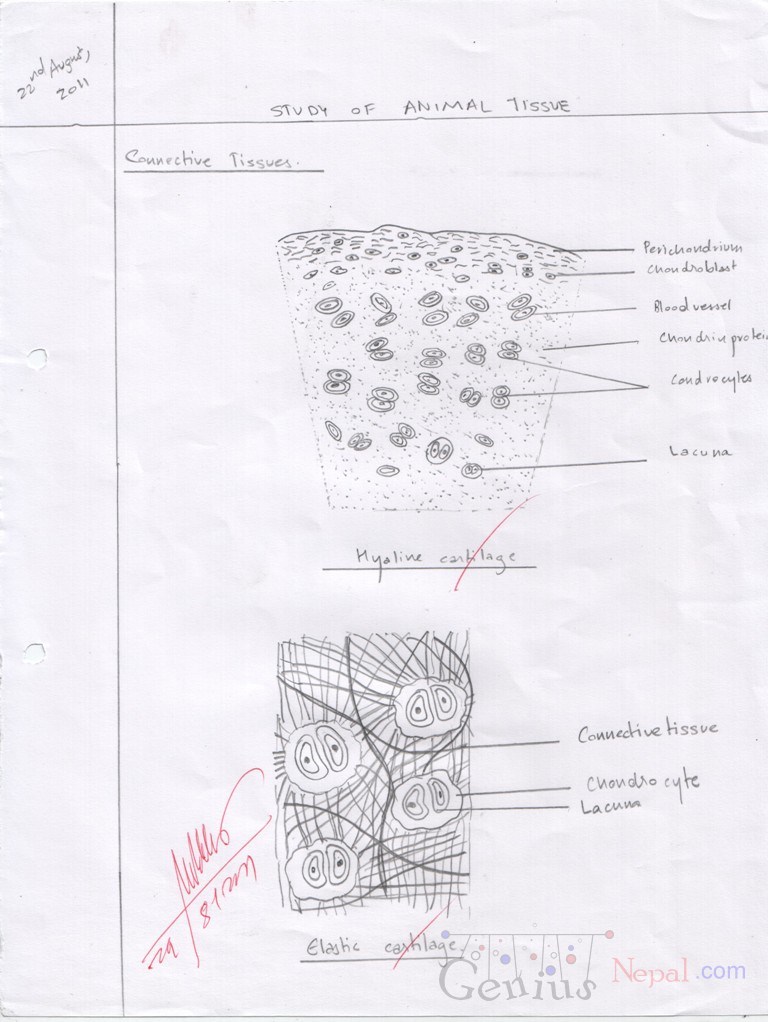 22nd August,
2011
STUDY OF ANIMAL TISSUE
Connective Tissues.
Perichondrium
Chondroblast
Blood vessel
Chondrin protein
Condrocytes
Lacuna
Hyaline cartilage
Connective tissue
Chondrocyte
Lacuna
Elastic cartilage.
Genius Nepal.com